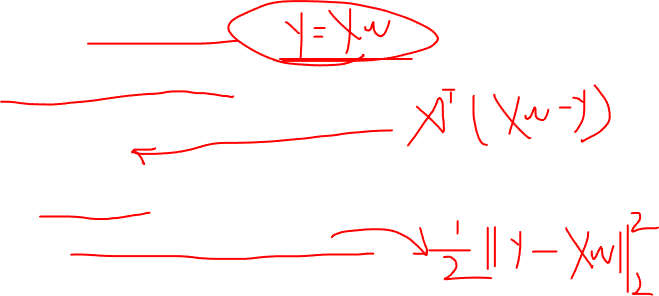 y = Xw
X^T (Xw - y)
1/2 ||y - Xw||_2^2